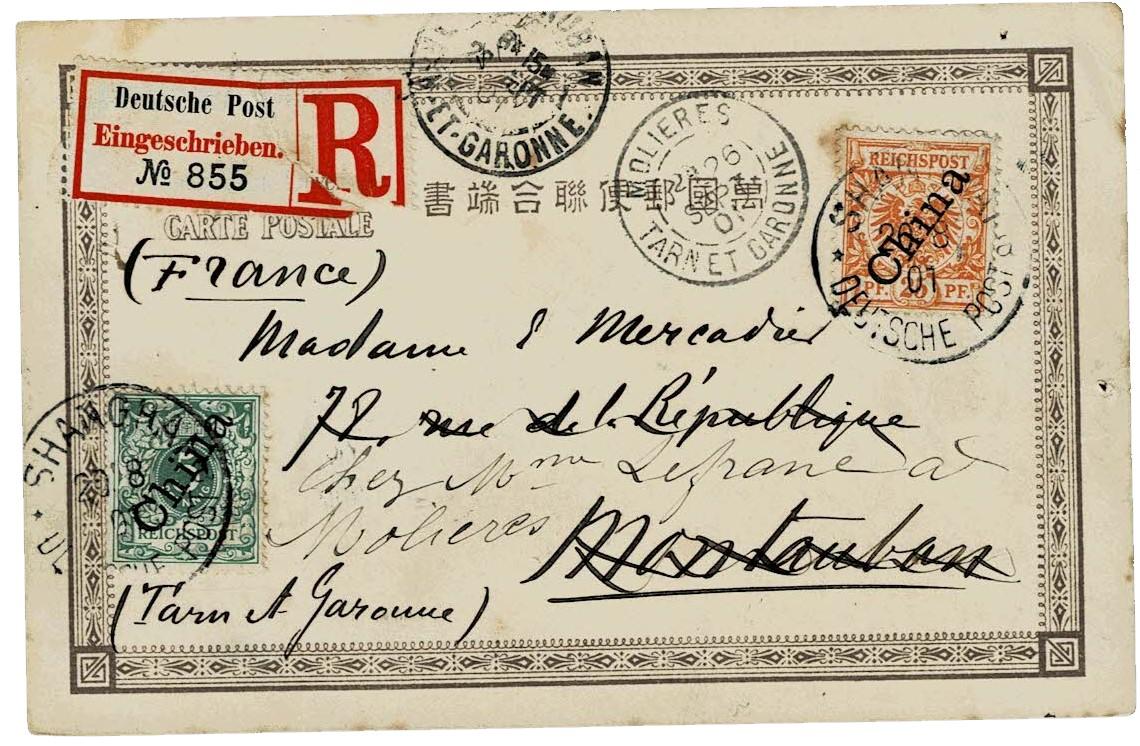 Deutsche Post
Eingeschrieben.
№ 855
R
TARN-ET-GARONNE.
MOLIERES
26
SEPT
01
TARN ET GARONNE
REICHSPOST
China
25 PF.
SHANGHAI
8
01
DEUTSCHE POST
書端合聯便郵國萬
CARTE POSTALE
(France)
Madame E Mercadier
72, rue de la République
Chez Mme Lefranc à
Molieres
Montauban
(Tarn et Garonne)
SHANGHAI
8
China
REICHSPOST